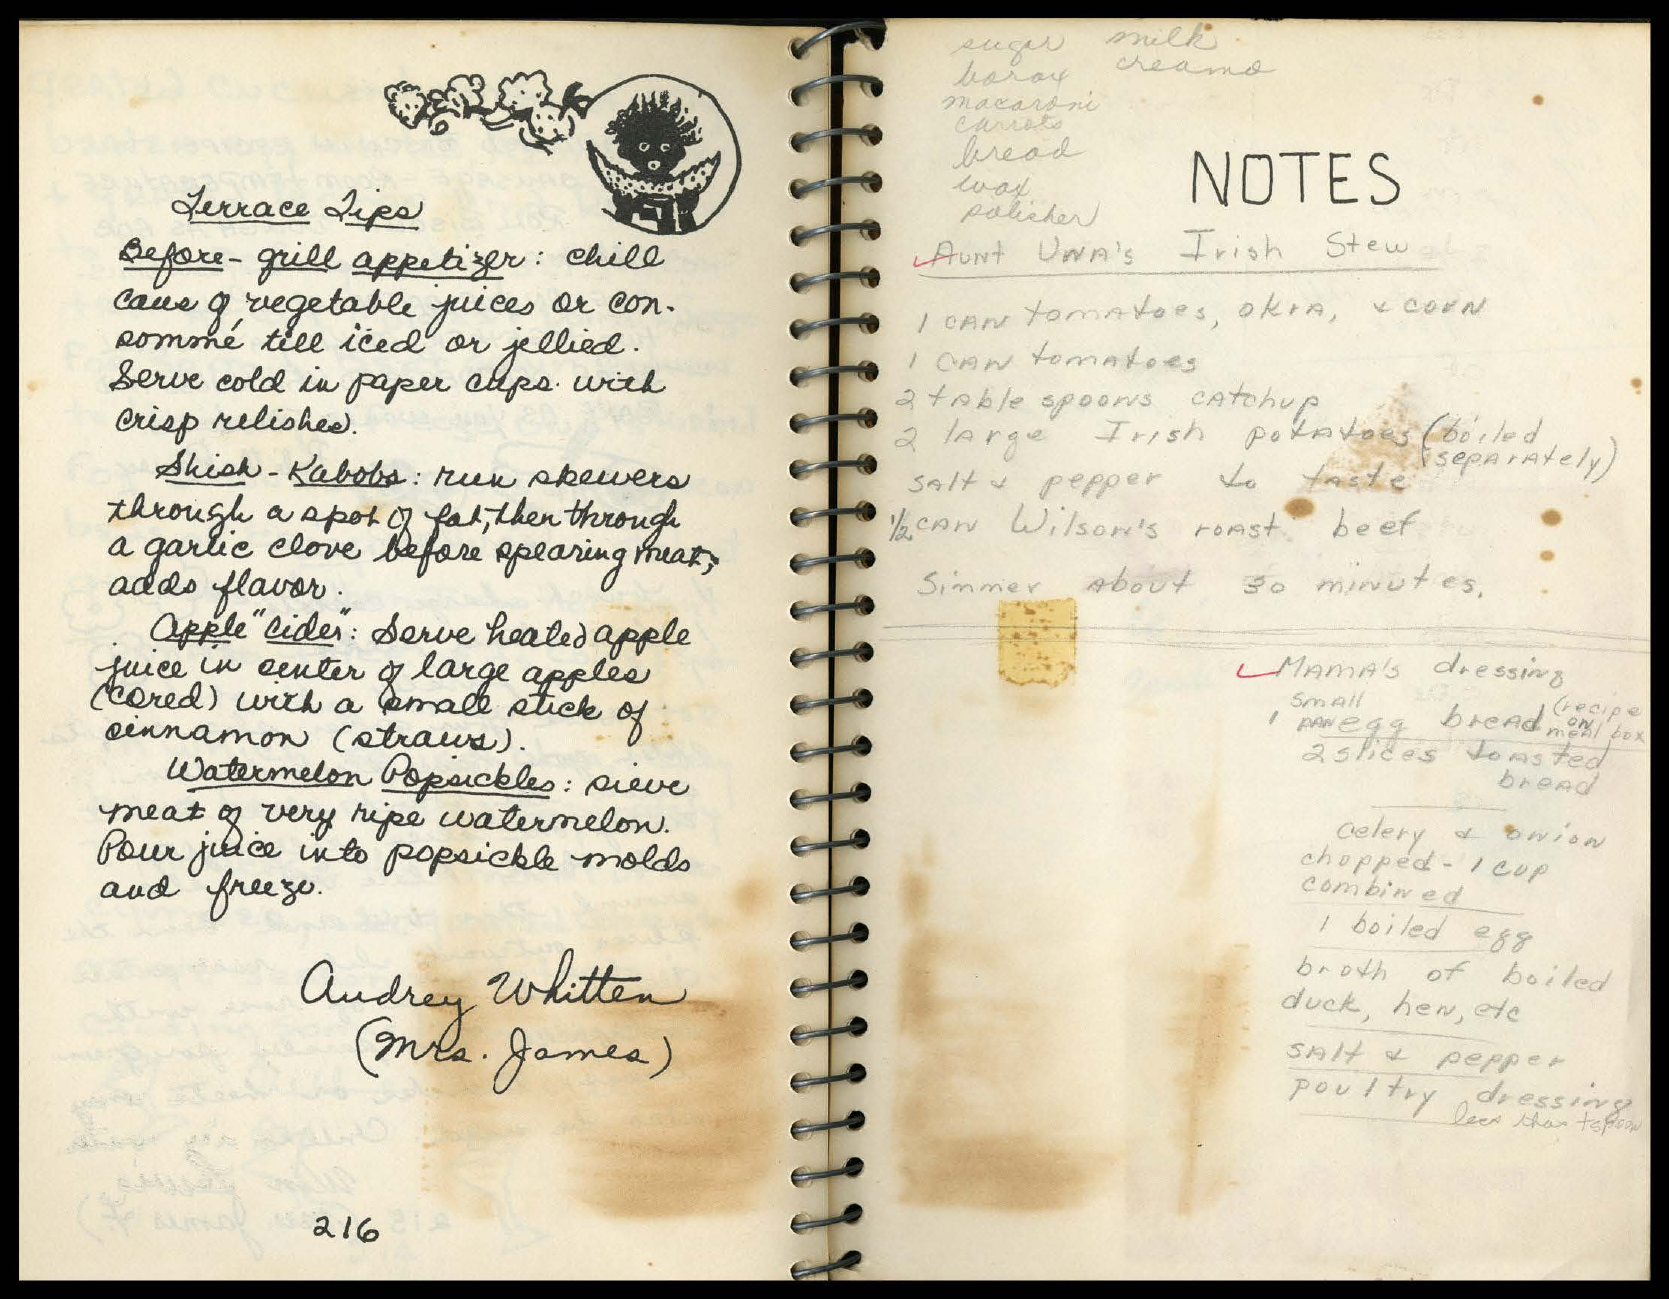 Terrace Tips
Before-grill appetizer: chill
cans of vegetable juices or con-
sommé till iced or jellied.
Serve cold in paper cups with
crisp relishes.
Shish-Kabobs: run skewers
through a spot of fat, then through
a garlic clove before spearing meat;
adds flavor.
Apple "Cider": Serve heated apple
juice in center of large apples
(cored) with a small stick of
cinnamon (straws).
Watermelon Popsickles: sieve
meat of very ripe watermelon.
Pour juice into popsickle molds
and freeze.
Audrey Whitten
(Mrs. James)
216
sugar milk
borax creama
macaroni
carrots
bread
wax
polisher
NOTES
Aunt Una's Irish Stew
1 can tomatoes, okra, & corn
1 can tomatoes
2 tablespoons catchup
2 large Irish potatoes (boiled
separately)
salt & pepper to taste
1/2 can Wilson's roast beef
Simmer about 30 minutes.
Mama's dressing
1 small pan egg bread (recipe
on meal box
2 slices toasted
bread
celery & onion
chopped - 1 cup
combined
1 boiled egg
broth of boiled
duck, hen, etc
salt & pepper
poultry dressing
less than tspoon